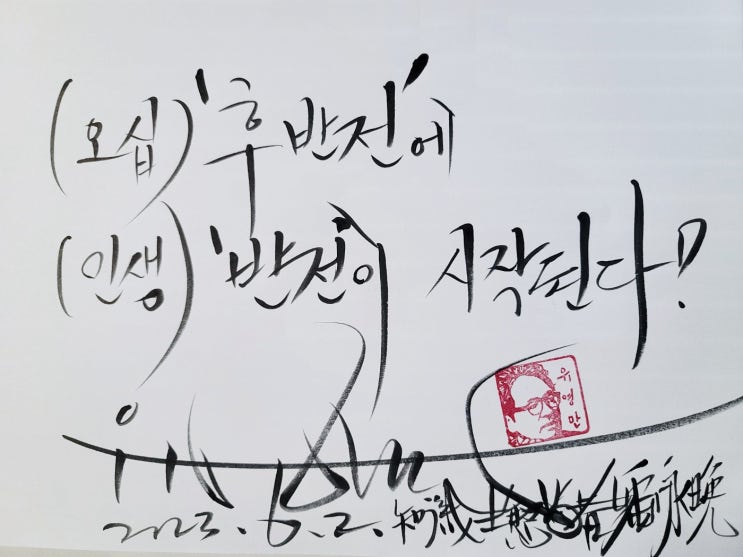 (오십) '후반전'에
(인생) '반전'이 시작된다!
유영만
유영만
2023. 6. 2. 知識生態學者 劉永晩